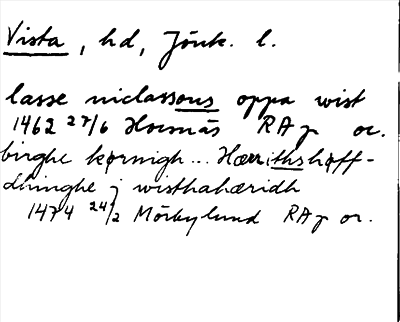 Vista, hd, Jönk. l.
lasse niclassons oppa wist
1462 27/6 Hornäs RA p or.
birghe kørnigh... Hærrithshøff-
dhinghe j wisthahæridh
1474 24/2 Mörbylund RA p or.